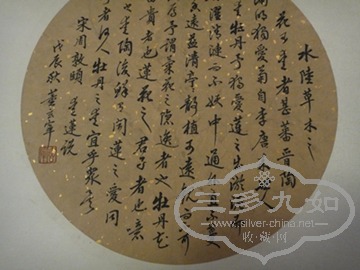 水陸草木之
花可愛者甚蕃晉陶
淵明獨愛菊自李唐來
愛牡丹予獨愛蓮之出淤
濯清漣而不妖中通外直不
香遠益清亭亭靜植可遠觀而不可
焉予謂菊花之隱逸者也牡丹花
富貴者也蓮花之君子者也噫
之愛陶後鮮有聞蓮之愛同
予者何人牡丹之愛宜乎眾矣
宋周敦頤 愛蓮說
戊辰秋
三多九如
www.silver-china.net
收藏网